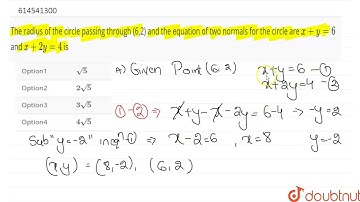 614541300
The radius of the circle passing through (6,2) and the equation of two normals for the circle are x + y = 6
and x + 2y = 4 is
Option1 √5
Option2 2√5
Option3 3√5
Option4 4√5
A) Given Point (6, 2)
x+y=6 -①
x+2y=4 -②
①-② ⇒ x+y-x-2y=6-4 ⇒ -y=2
Sub "y=-2" in eqⁿ-① ⇒ x-2=6, x=8 y=-2
(x,y) = (8,-2), (6,2)
doubtnut